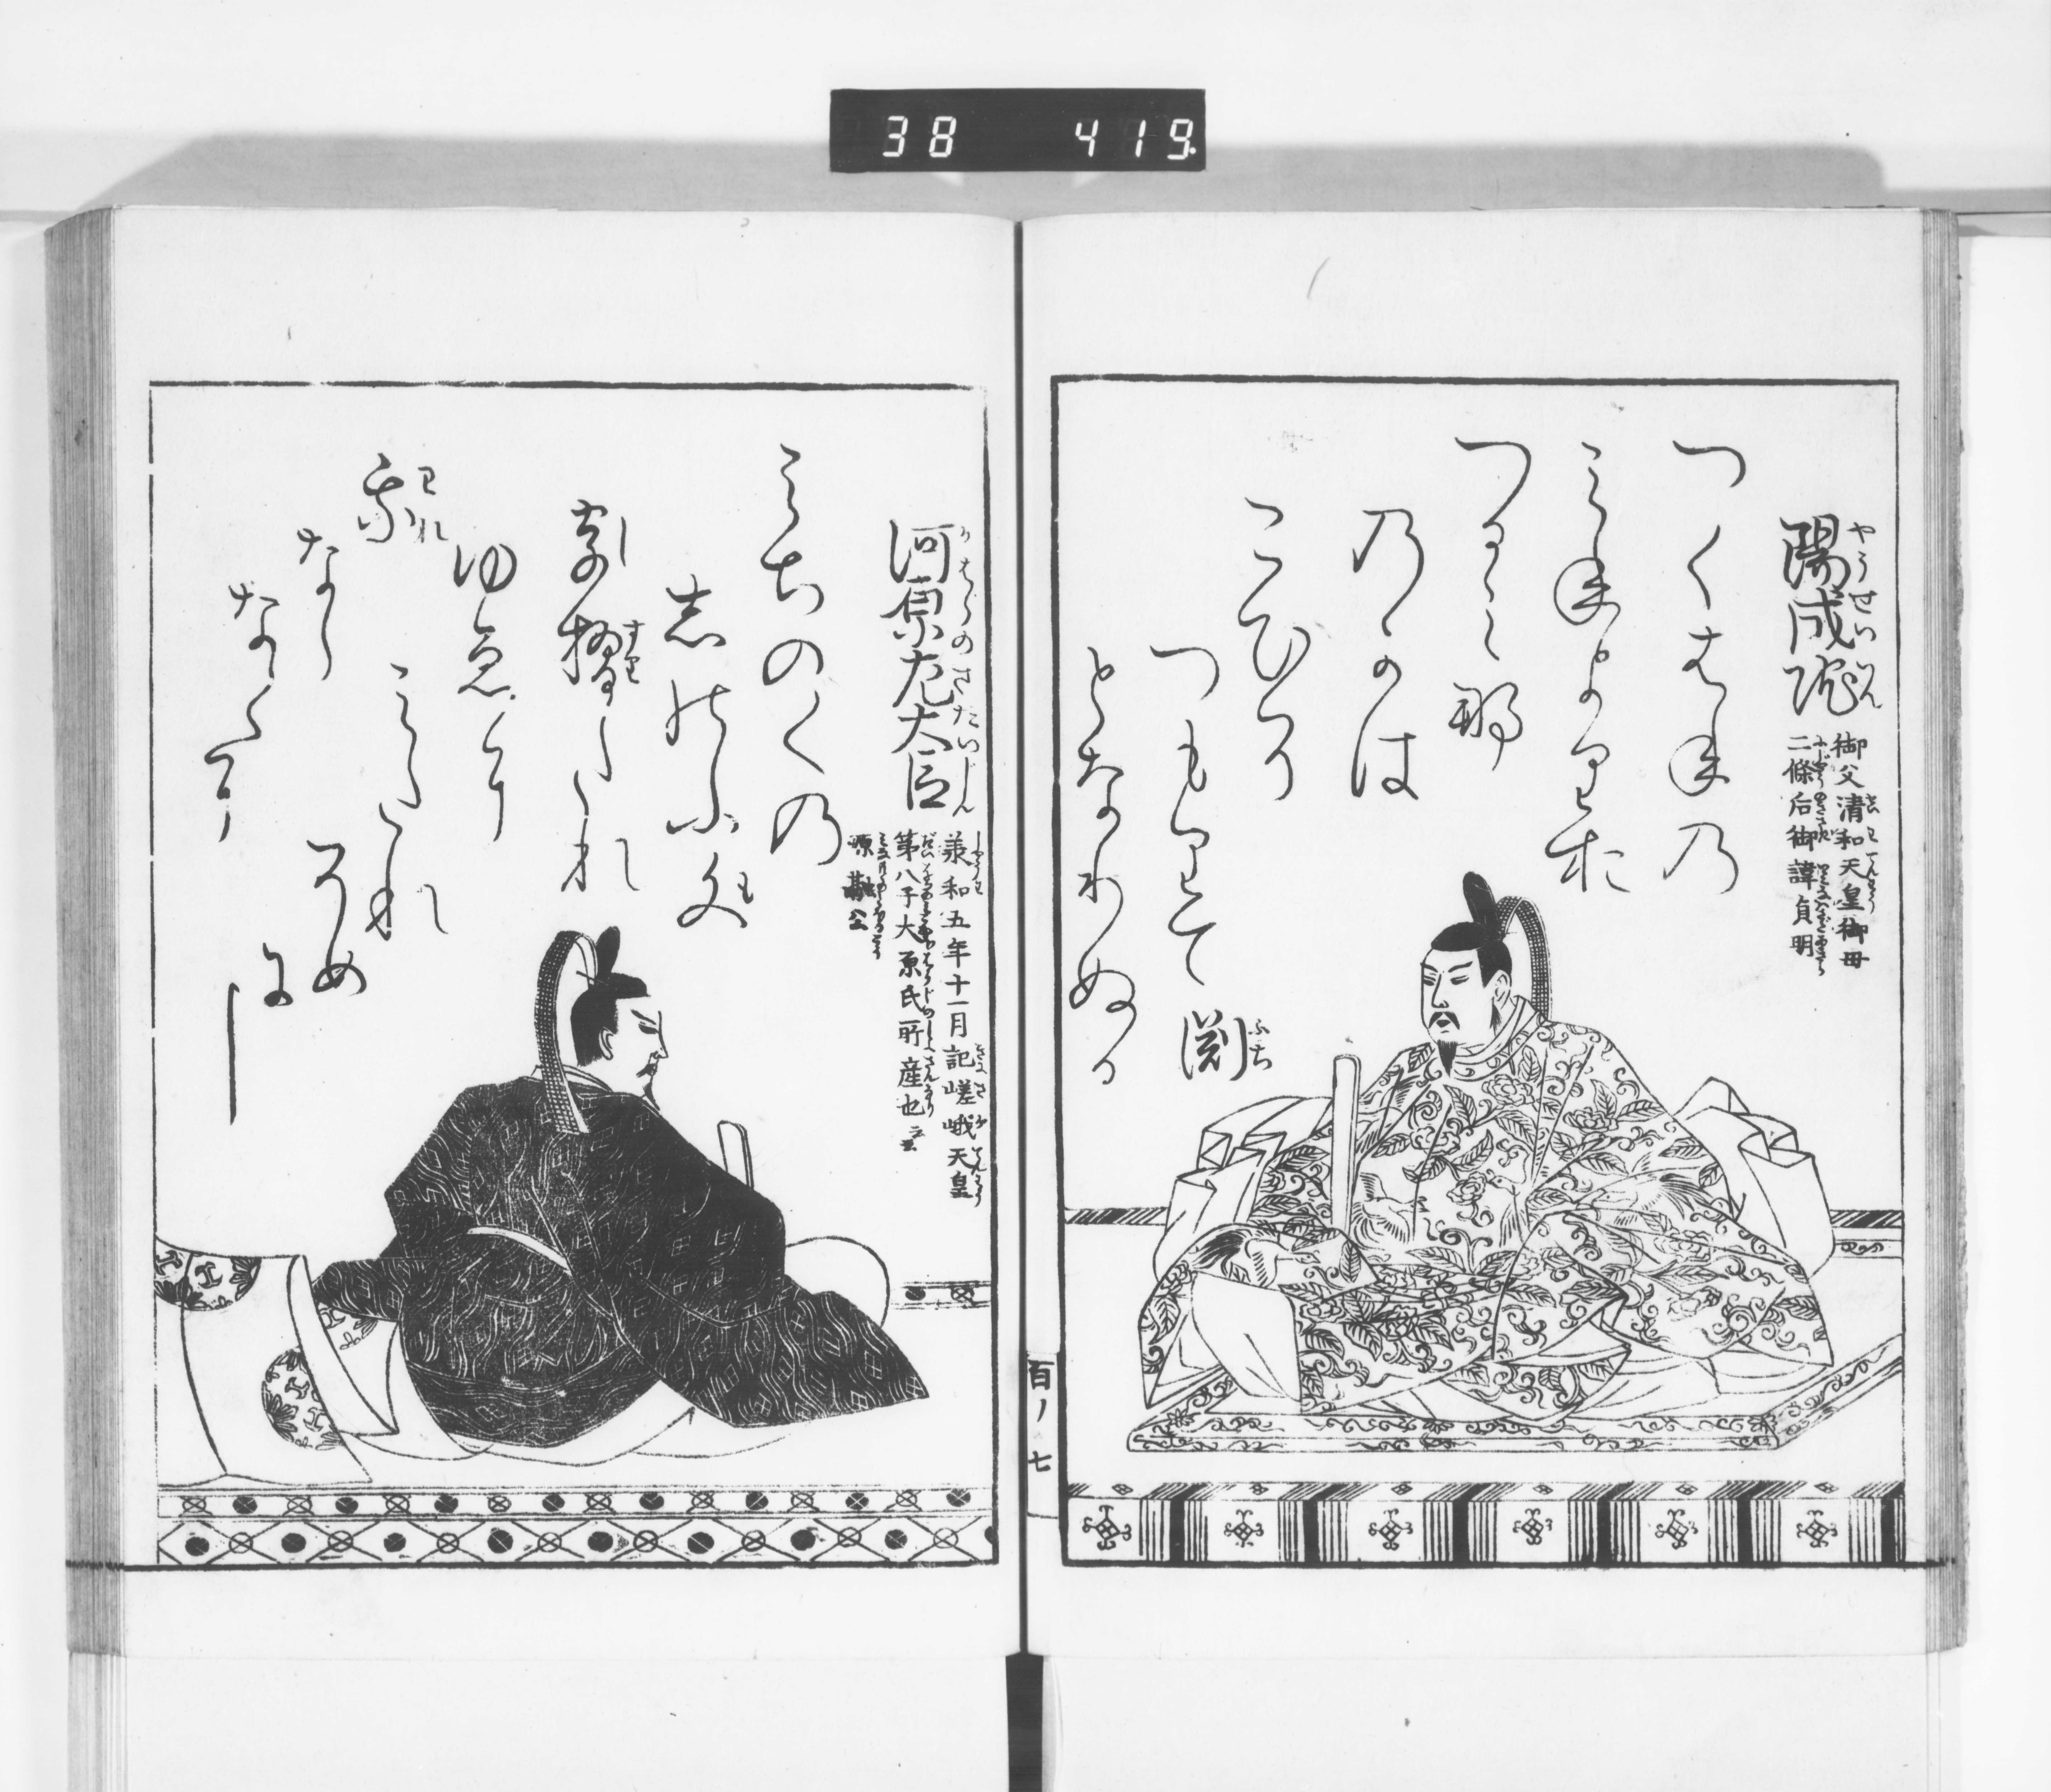 38 419
陽成院
やうせいいん
御父清和天皇御母
二條后御諱貞明
つくはねの
みねよりお
つるみな
のかは
こひそ
つもりて
淵
ふち
となりぬる
百ノ七
河原左大臣
かはらのさたいじん
兼和五年十一月記嵯峨天皇
第八子大原氏所産也云云
源融公
みちのくの
志のふも
し
すり
たれ
ゆゑに
みたれ
そめ
に
我
われ
なら
なくに